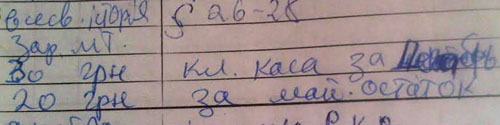 всесв. історія § 26-28
Зар. літ.
30 грн кл. каса за Декабрь
20 грн за май. остаток